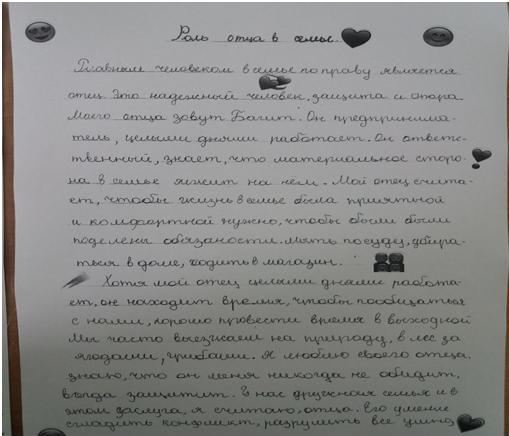 Роль отца в семье.
Главным человеком в семье по праву является
отец. Это надежный человек, защита и опора.
Моего отца зовут Багит. Он предпринима-
тель, целыми днями работает. Он ответс-
твенный, знает, что материальное сторо-
на в семье лежит на нём. Мой отец счита-
ет, чтобы жизнь в семье была приятной
и комфортной нужно, чтобы были были
поделены обязаности: мыть посуду, убира-
ться в доме, ходить в магазин.
Хотя мой отец целыми днями работа-
ет, он находит время, чтобы пообщаться
с нами, хорошо провести время в выходной
Мы часто выезжаем на природу, в лес за
ягодами, грибами. Я люблю своего отца,
знаю, что он меня никогда не обидит,
всегда защитит. У нас дружная семья и в
этом заслуга, я считаю, отца. Его умение
сгладить конфликт, разрулить все